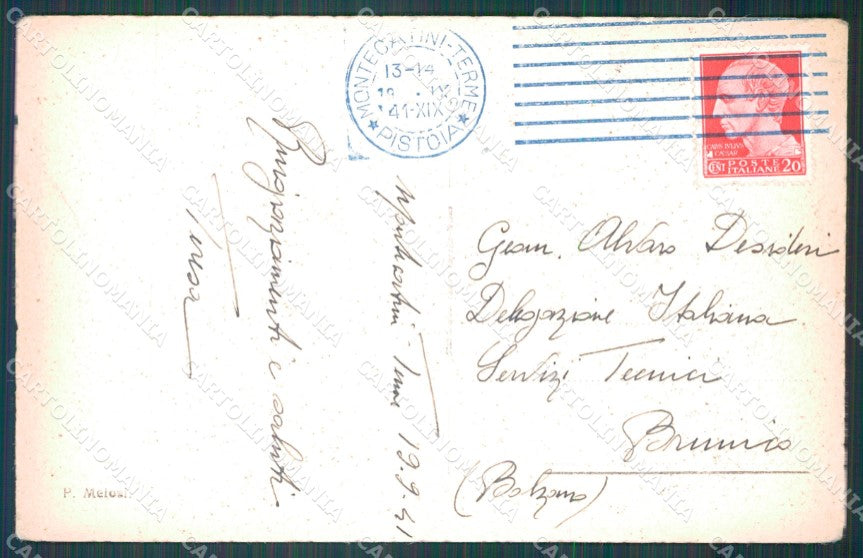 MONTECATINI-TERME
13-14
19 . IX
41-XIX
★ PISTOIA ★
CAIUS IVLIVS
CAESAR
CENT POSTE ITALIANE 20
Ringraziamenti e saluti.
Montecatini Terme 19.9.41
Geom. Alvaro Desideri
Delegazione Italiana
Servizi Tecnici
Brunico
(Bolzano)
P. Melosi
CARTOLINOMANIA